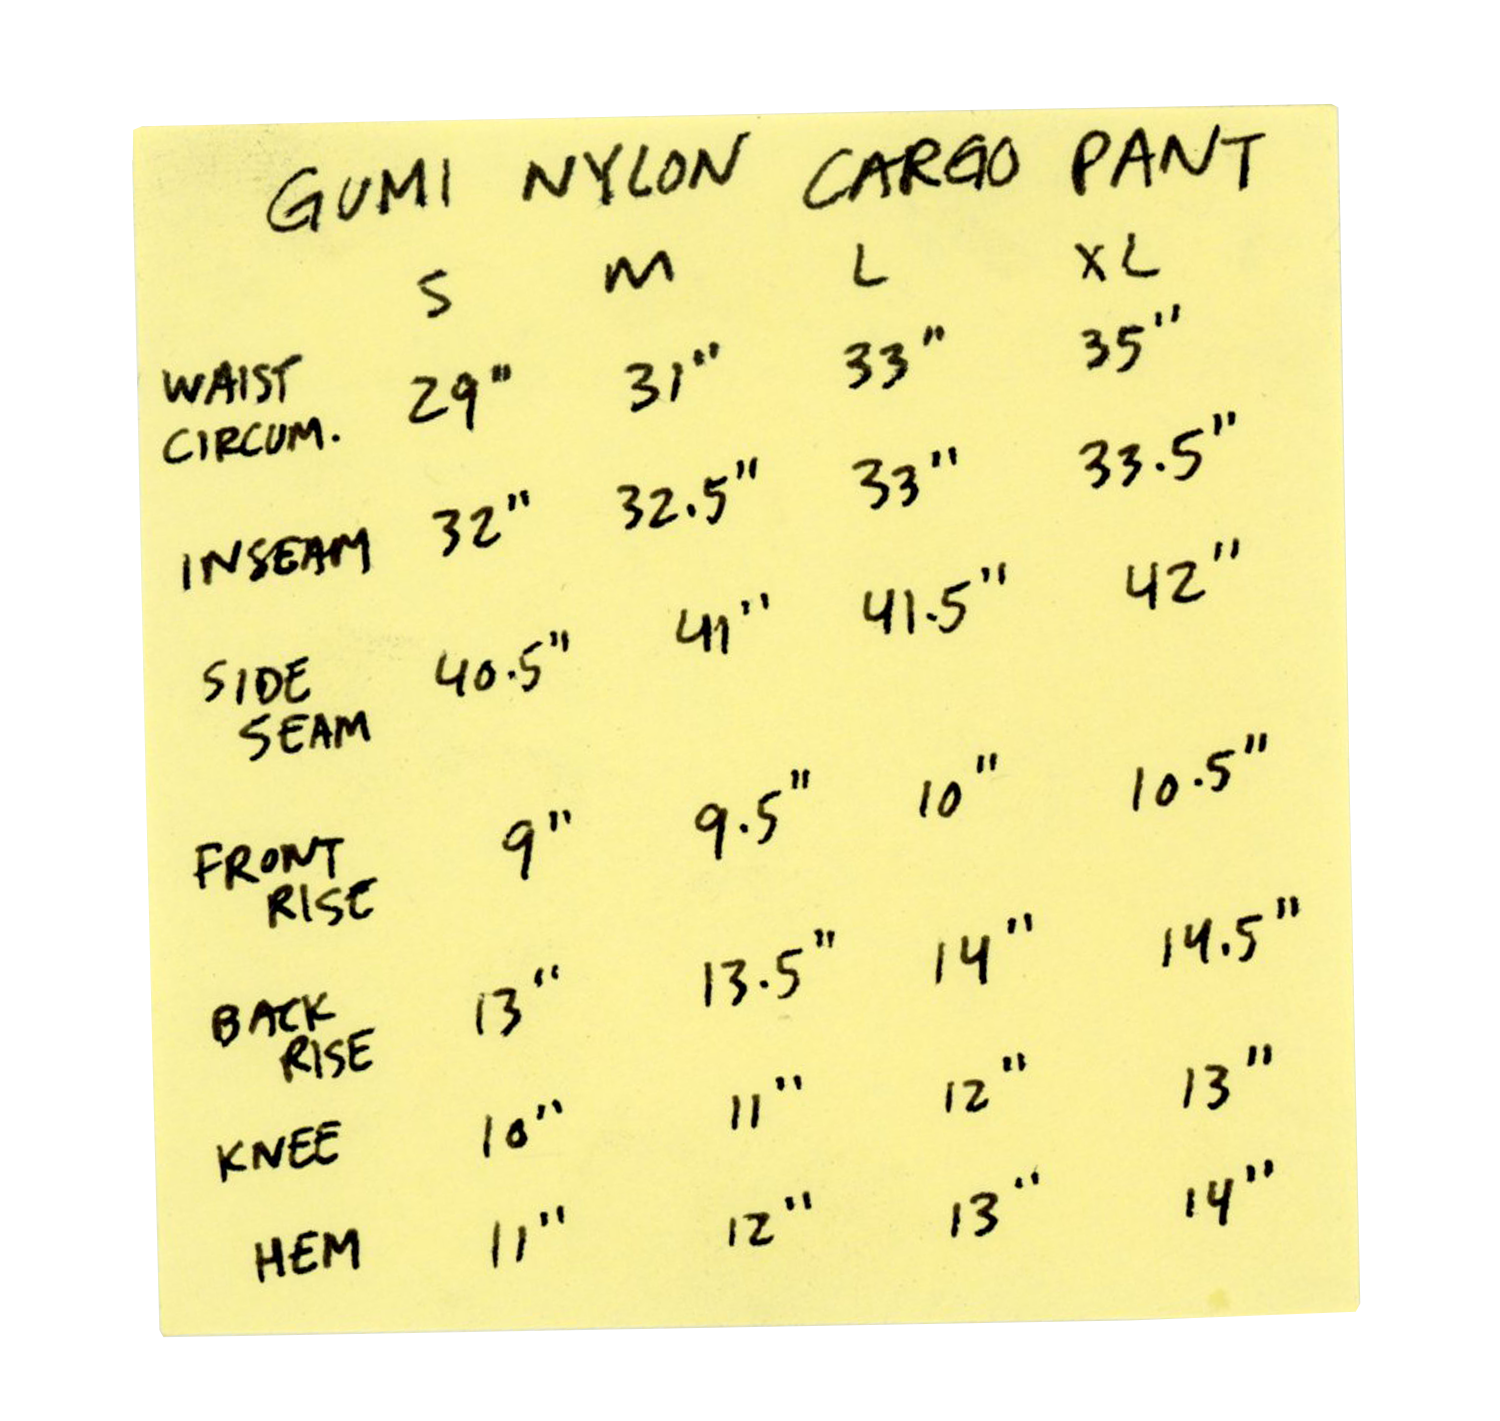 GUMI NYLON CARGO PANT
S M L XL
WAIST CIRCUM. 29" 31" 33" 35"
INSEAM 32" 32.5" 33" 33.5"
SIDE SEAM 40.5" 41" 41.5" 42"
FRONT RISE 9" 9.5" 10" 10.5"
BACK RISE 13" 13.5" 14" 14.5"
KNEE 10" 11" 12" 13"
HEM 11" 12" 13" 14"